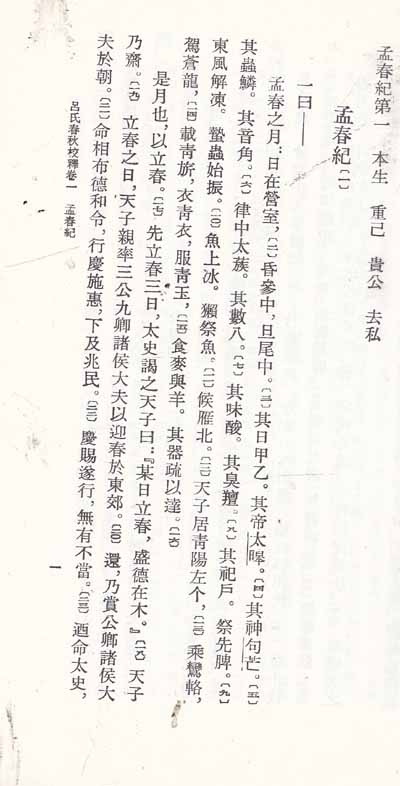 孟春紀第一　本生　重己　貴公　去私
孟春紀〔一〕
一曰——
孟春之月：日在營室，〔二〕昏參中，旦尾中。〔三〕其日甲乙。其帝太皞。〔四〕其神句芒。〔五〕
其蟲鱗。其音角。〔六〕律中太蔟。其數八。〔七〕其味酸。其臭羶。〔八〕其祀戶。祭先脾。〔九〕
東風解凍。蟄蟲始振。〔一〇〕魚上冰。獺祭魚。〔一一〕候雁北。〔一二〕天子居青陽左个，〔一三〕乘鸞輅，
駕蒼龍，〔一四〕載青旂，衣青衣，服青玉，〔一五〕食麥與羊。其器疏以達。〔一六〕
是月也，以立春。〔一七〕先立春三日，太史謁之天子曰：『某日立春，盛德在木。』〔一八〕天子
乃齋。〔一九〕立春之日，天子親率三公九卿諸侯大夫以迎春於東郊。〔二〇〕還，乃賞公卿諸侯大
夫於朝。〔二一〕命相布德和令，行慶施惠，下及兆民。〔二二〕慶賜遂行，無有不當。〔二三〕迺命太史，
呂氏春秋校釋卷一　孟春紀
一